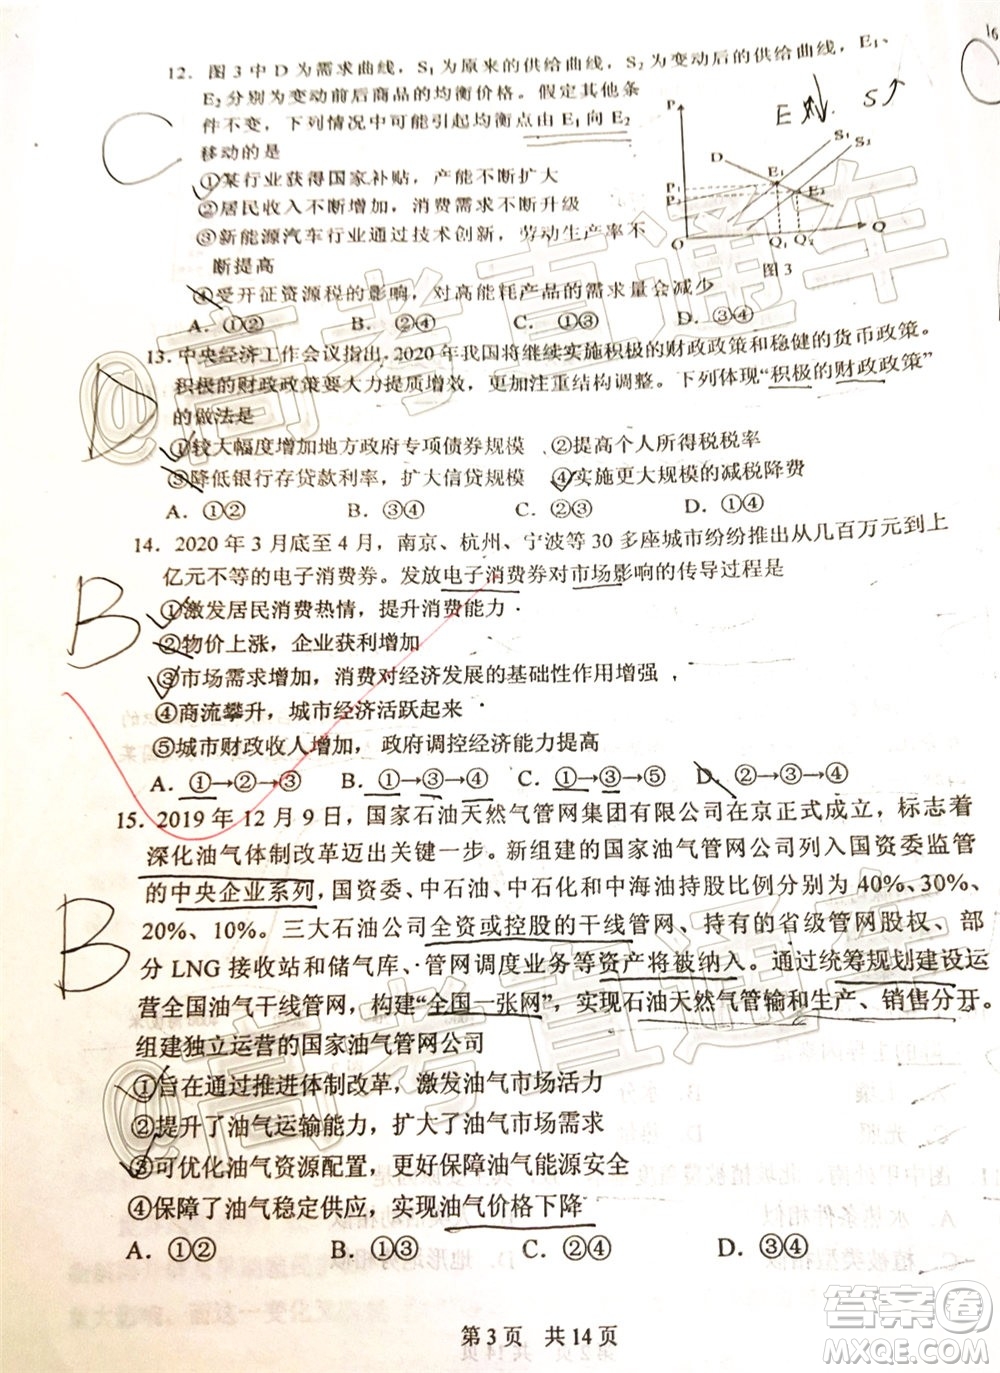 12．图3中D为需求曲线，S₁为原来的供给曲线，S₂为变动后的供给曲线，E₁、
E₂分别为变动前后商品的均衡价格。假定其他条
件不变，下列情况中可能引起均衡点由E₁向E₂
移动的是
①某行业获得国家补贴，产能不断扩大
②居民收入不断增加，消费需求不断升级
③新能源汽车行业通过技术创新，劳动生产率不
断提高
④受开征资源税的影响，对高能耗产品的需求量会减少
A．①② B．②④ C．①③ D．③④
C
E S
P
D
S₁
S₂
E₁
E₂
P₁
P₂
O Q₁ Q₂ Q
图3
16
13．中央经济工作会议指出，2020年我国将继续实施积极的财政政策和稳健的货币政策。
积极的财政政策要大力提质增效，更加注重结构调整。下列体现“积极的财政政策”
的做法是
①较大幅度增加地方政府专项债券规模 ②提高个人所得税税率
③降低银行存贷款利率，扩大信贷规模 ④实施更大规模的减税降费
A．①② B．②③ C．③④ D．①④
D
14．2020年3月底至4月，南京、杭州、宁波等30多座城市纷纷推出从几百万元到上
亿元不等的电子消费券。发放电子消费券对市场影响的传导过程是
①激发居民消费热情，提升消费能力
②物价上涨，企业获利增加
③市场需求增加，消费对经济发展的基础性作用增强
④商流攀升，城市经济活跃起来
⑤城市财政收人增加，政府调控经济能力提高
A．①→②→③ B．①→③→④ C．①→③→⑤ D．②→③→④
B
15．2019年12月9日，国家石油天然气管网集团有限公司在京正式成立，标志着
深化油气体制改革迈出关键一步。新组建的国家油气管网公司列入国资委监管
的中央企业系列，国资委、中石油、中石化和中海油持股比例分别为40%、30%、
20%、10%。三大石油公司全资或控股的干线管网、持有的省级管网股权、部
分LNG接收站和储气库、管网调度业务等资产将被纳入。通过统筹规划建设运
营全国油气干线管网，构建“全国一张网”，实现石油天然气管输和生产、销售分开。
组建独立运营的国家油气管网公司
①旨在通过推进体制改革，激发油气市场活力
②提升了油气运输能力，扩大了油气市场需求
③可优化油气资源配置，更好保障油气能源安全
④保障了油气稳定供应，实现油气价格下降
A．①② B．①③ C．②④ D．③④
B
第3页 共14页
@高考直通车
@高考直通车
答案圈
MXQE.COM